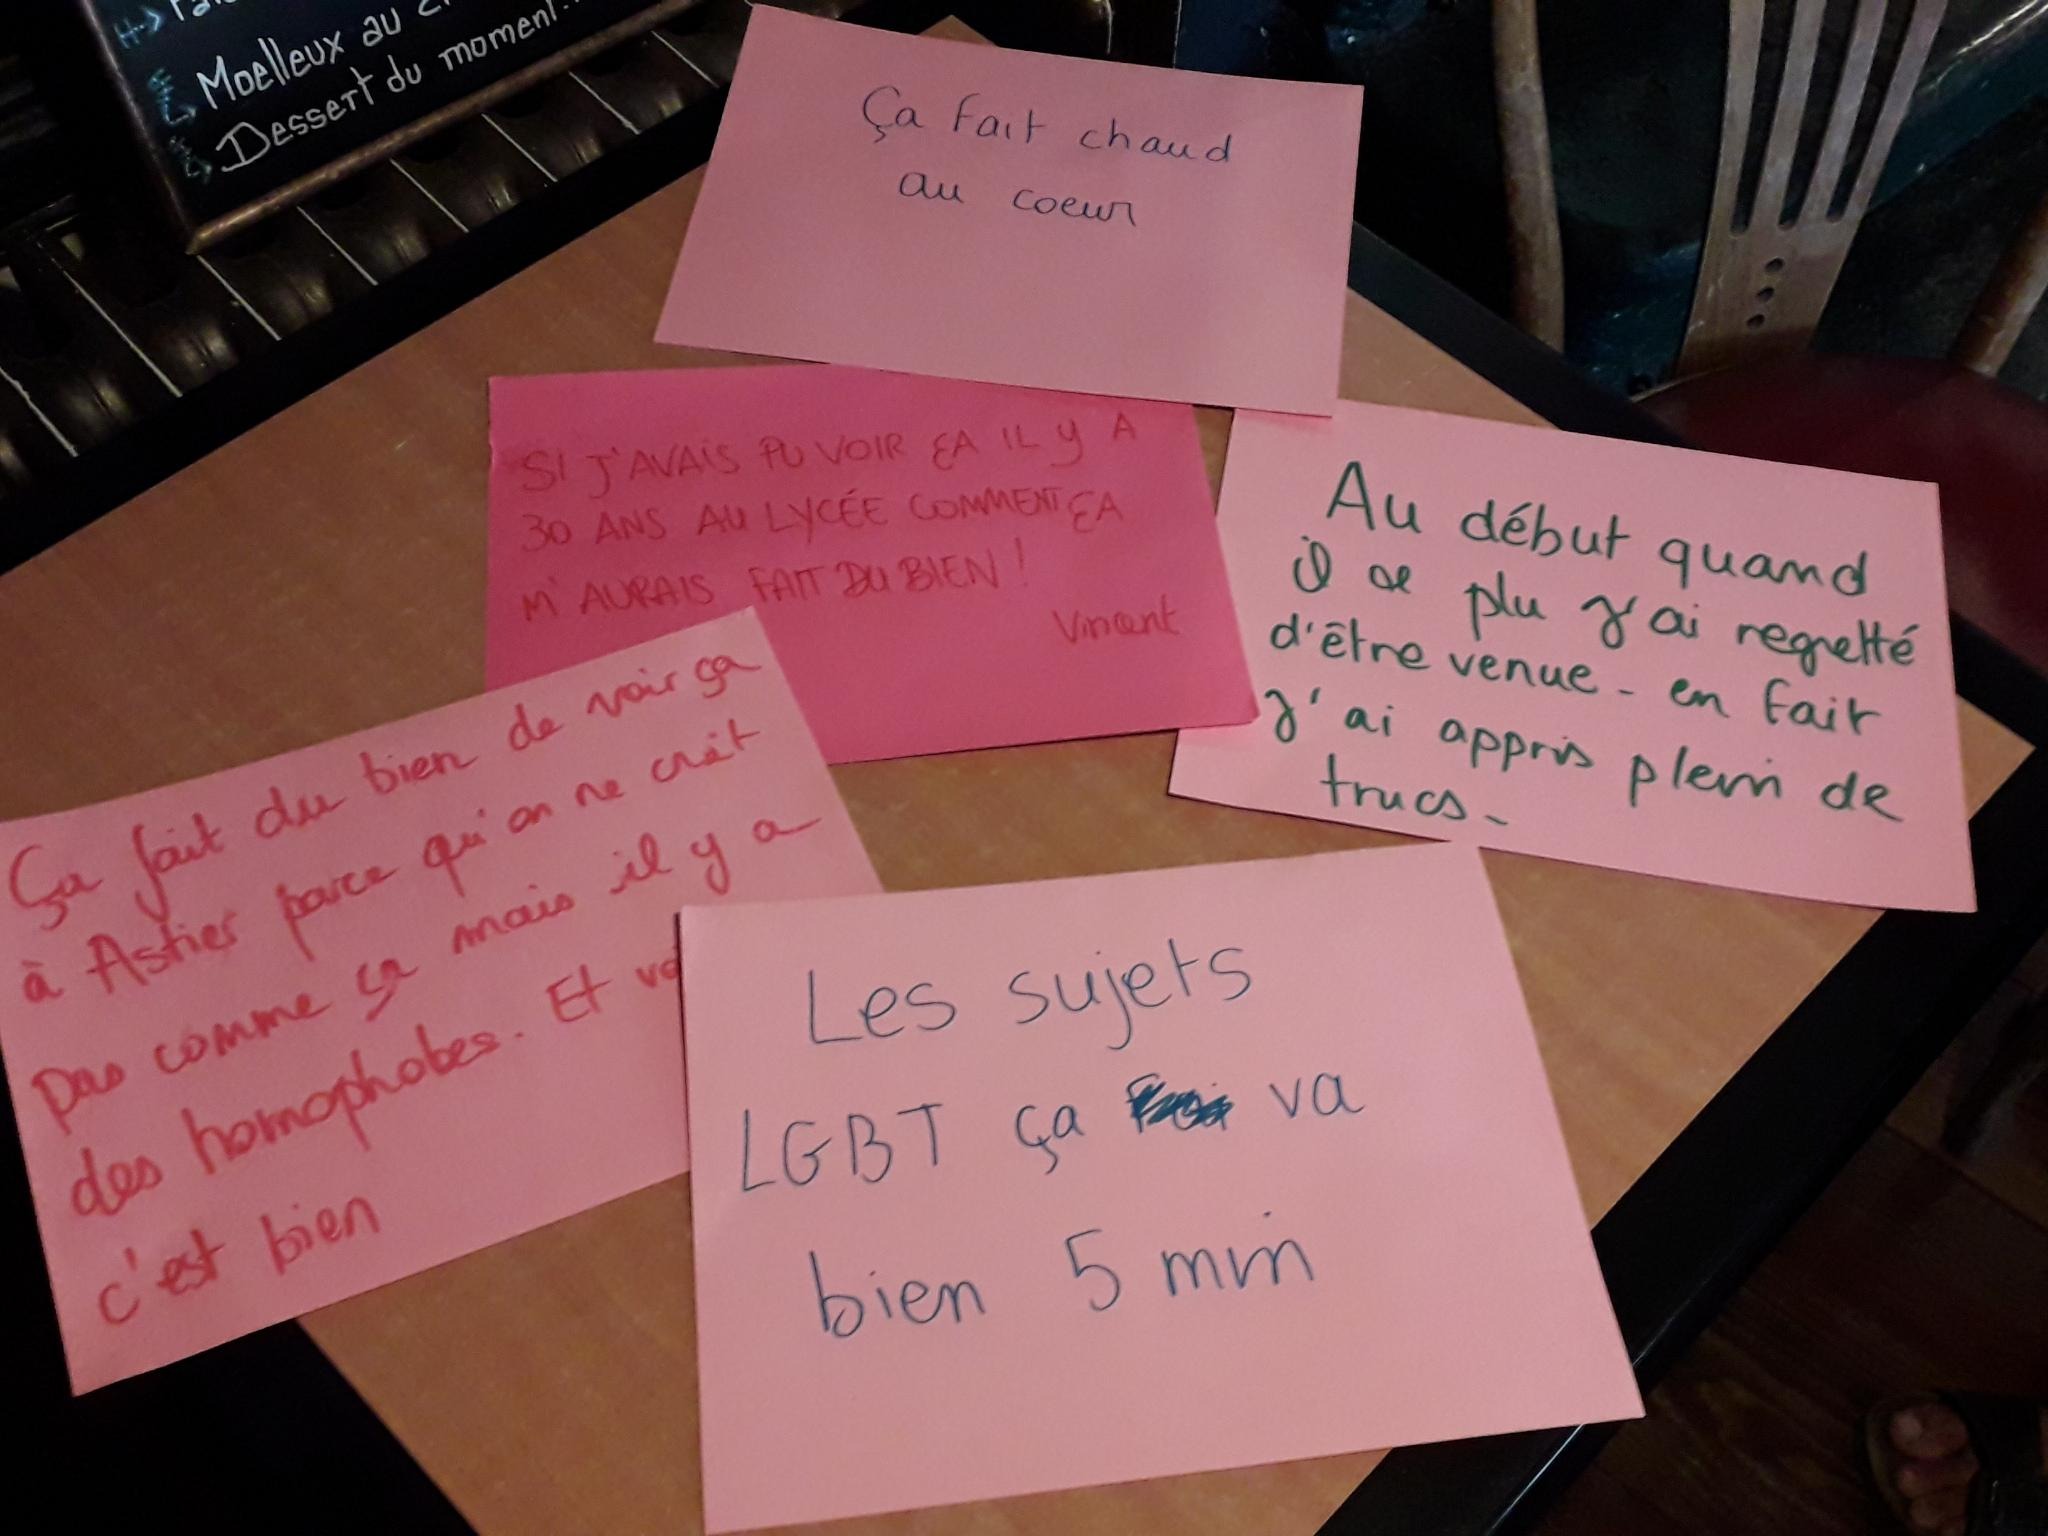 Moelleux au
Dessert du moment
Ça fait chaud
au coeur
SI J'AVAIS PU VOIR ÇA IL Y A
30 ANS AU LYCÉE COMMENT ÇA
M'AURAIS FAIT DU BIEN !
Vincent
Au début quand
il a plu j'ai regretté
d'être venue - en fait
j'ai appris plein de
trucs -
Ça fait du bien de voir ça
à Astier parce qu'on ne croit
pas comme ça mais il y a
des homophobes. Et
c'est bien
Les sujets
LGBT ça va
bien 5 min